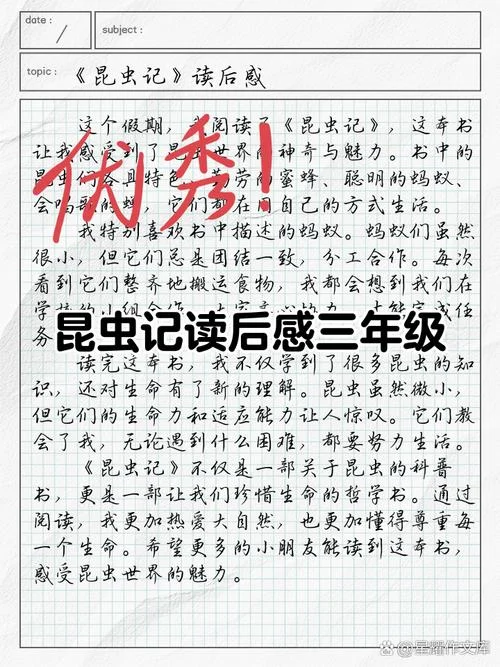 date:
subject:
topic: 《昆虫记》读后感
这个假期，我阅读了《昆虫记》，这本书
让我感受到了昆虫世界的神奇与魅力。书中的
昆虫们各具特色，勤劳的蜜蜂、聪明的蚂蚁、
会唱歌的蝉，它们都在用自己的方式生活。
优秀！
我特别喜欢书中描述的蚂蚁。蚂蚁们虽然
很小，但它们总是团结一致，分工合作。每次
看到它们整齐地搬运食物，我都会想到我们在
学校的小组合作，大家齐心协力，才能完成任
务
昆虫记读后感三年级
读完这本书，我不仅学到了很多昆虫的知
识，还对生命有了新的理解。昆虫虽然微小，
但它们的生命力和适应能力让人惊叹。它们教
会了我，无论遇到什么困难，都要努力生活。
《昆虫记》不仅是一部关于昆虫的科普
书，更是一部让我们珍惜生命的哲学书。通过
阅读，我更加热爱大自然，也更加懂得尊重每
一个生命。希望更多的小朋友能读到这本书，
感受昆虫世界的魅力。
星耀作文库